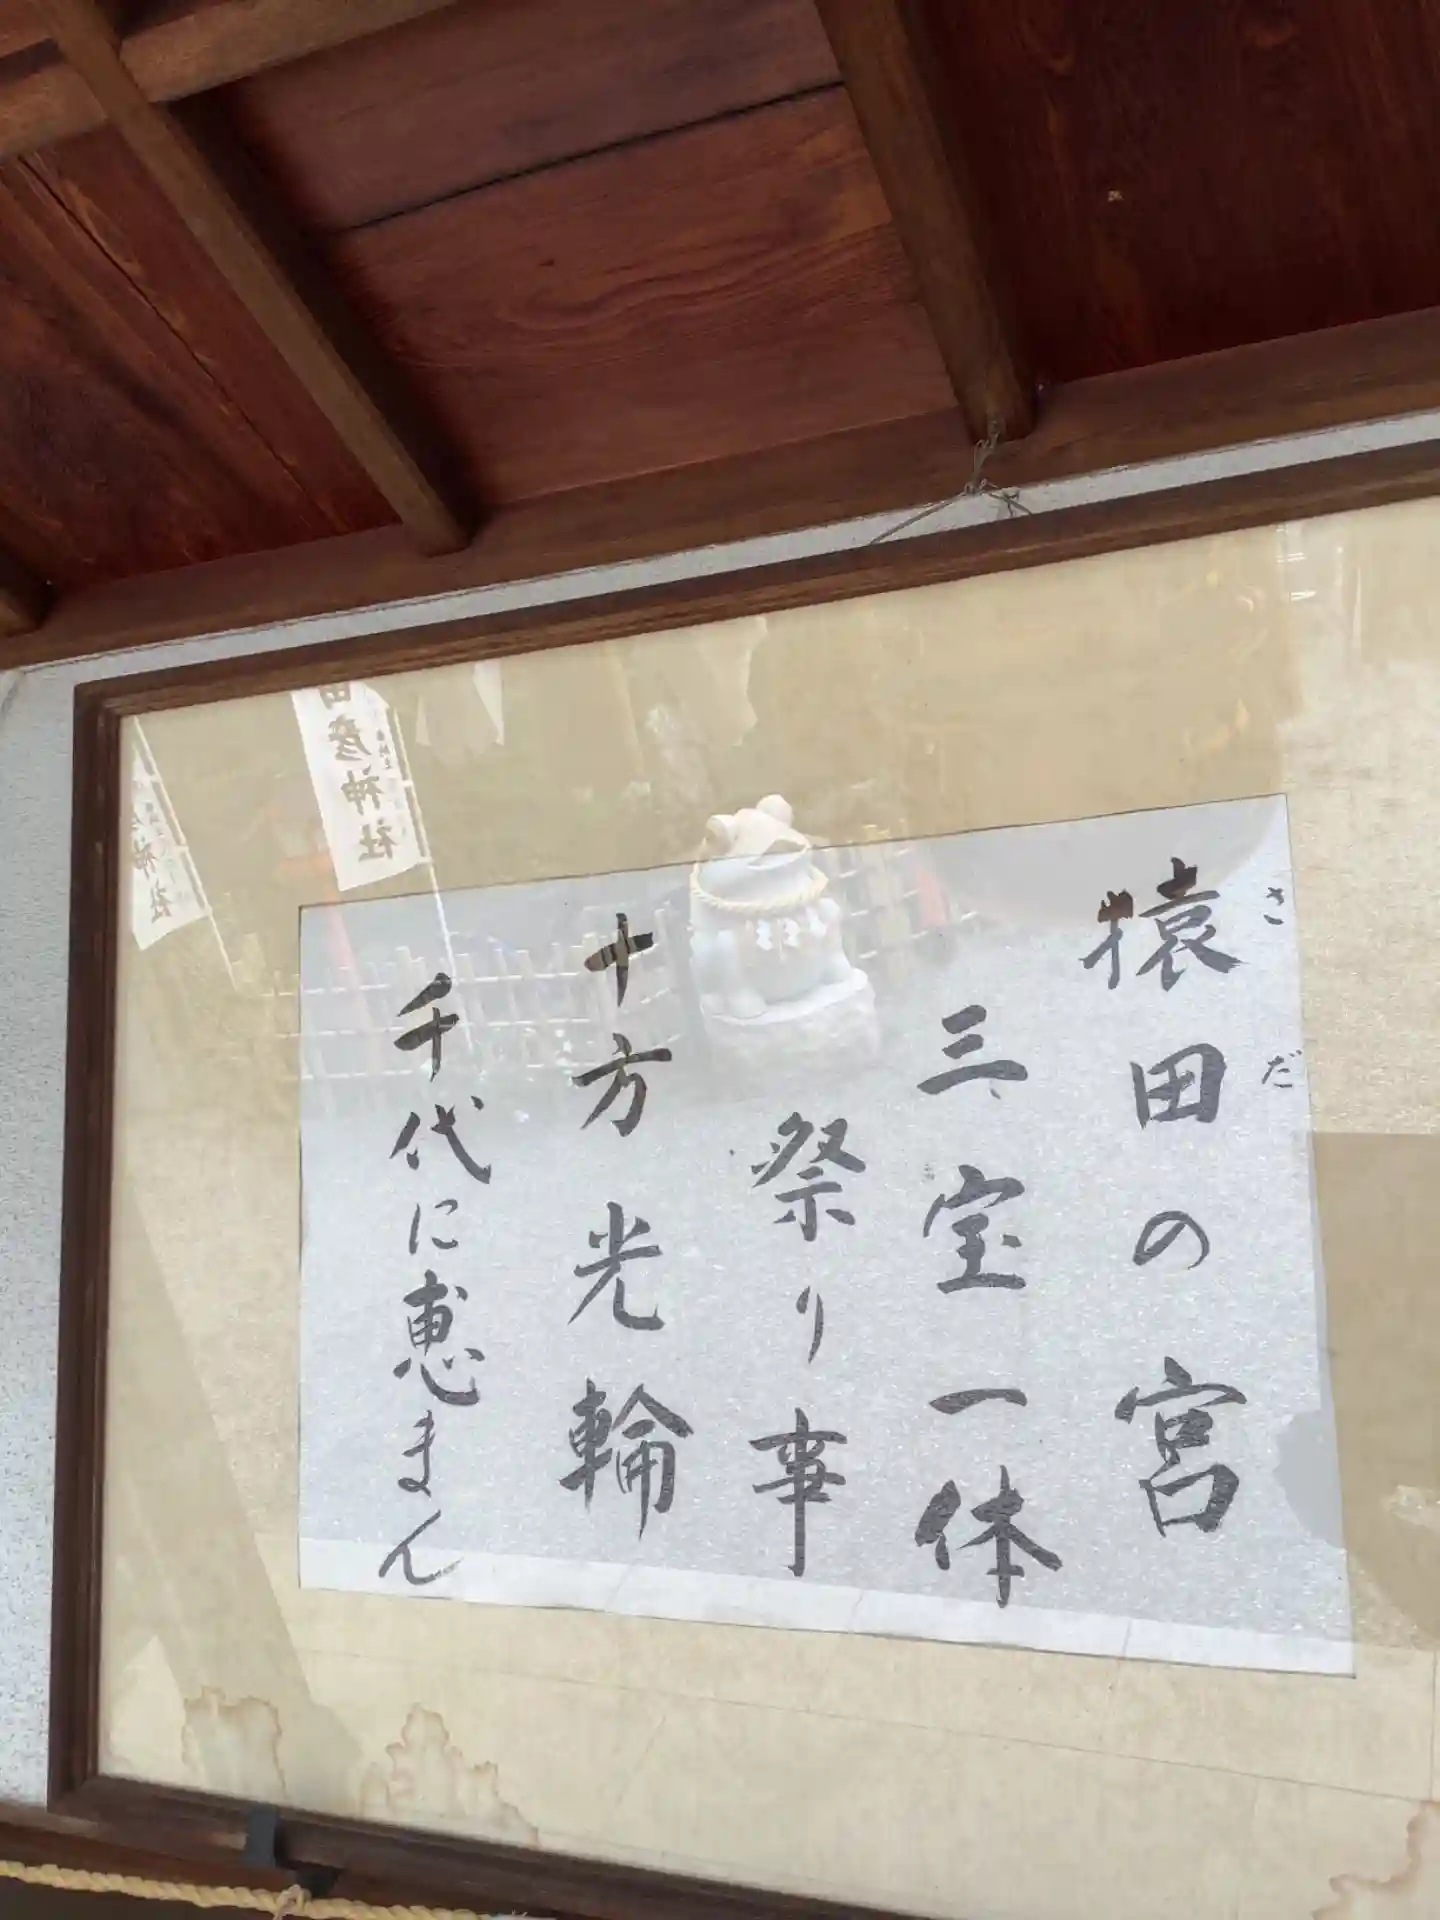 猿田の宮
さだ
三宝一体
祭り事
十方光輪
千代に恵まん
田彦神社
神社